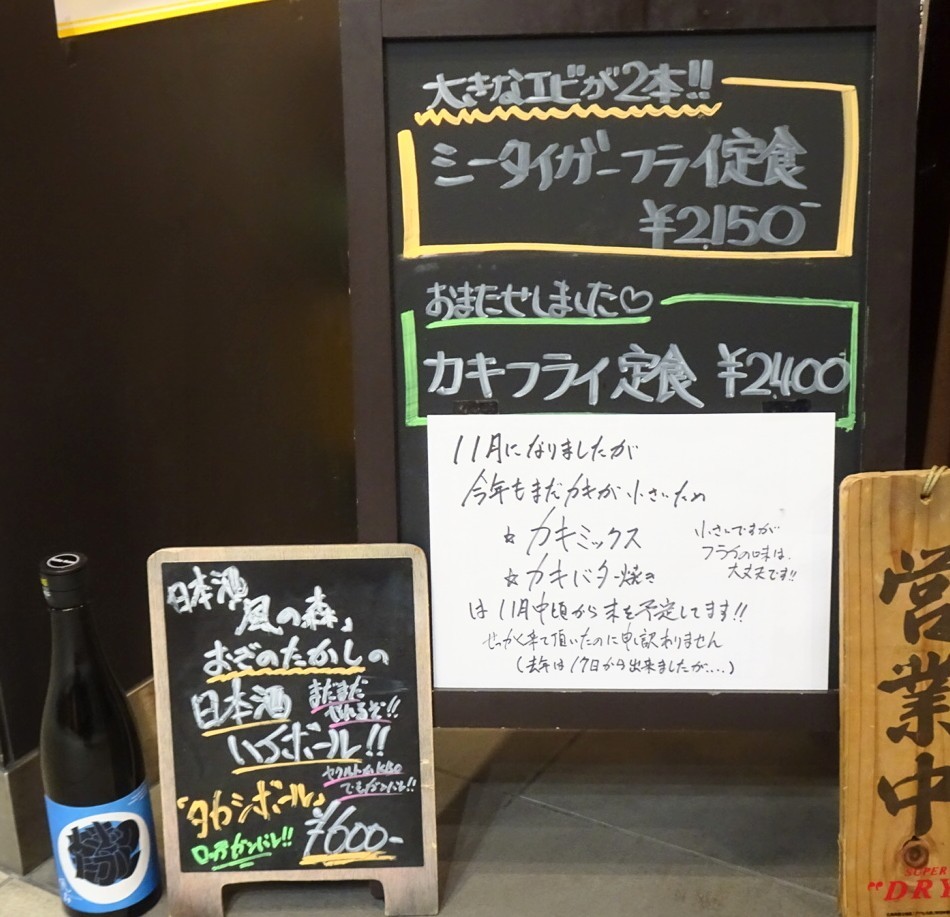 大きなエビが2本!!
ミータイガーフライ定食
¥2,150-
おまたせしました♡
カキフライ定食 ¥2,400
11月になりましたが
今年もまだカキが小さいため
☆カキミックス
☆カキバター焼き
小さいですが
フライの味は、
大丈夫です!!
は11月中頃から末を予定してます!!
せっかく来て頂いたのに申し訳わりません
(去年は17日から出来ましたが....)
日本酒
風の森」
おぎのたかしの
日本酒
まだまだ
ハイボール!!
でもガンバレ!!
「タカシボール」
ロッテガンバレ!!
¥600-
営業中
SUPER
"DRY